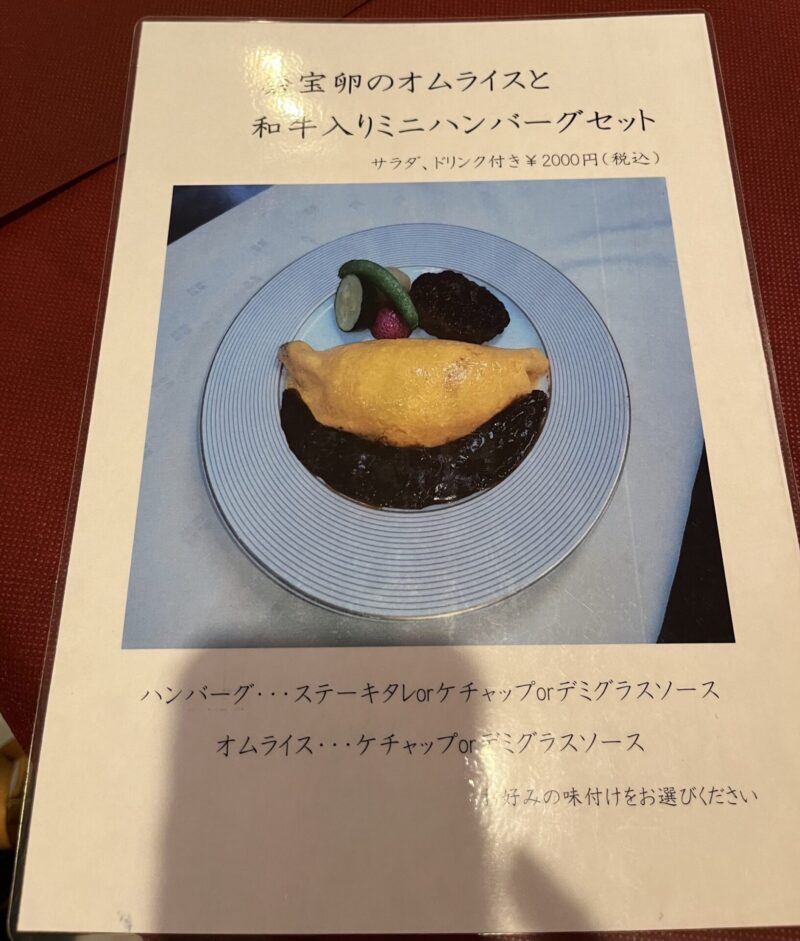 宝卵のオムライスと
和牛入りミニハンバーグセット
サラダ、ドリンク付き￥2000円(税込)
ハンバーグ･･･ステーキタレorケチャップorデミグラスソース
オムライス･･･ケチャップorデミグラスソース
お好みの味付けをお選びください